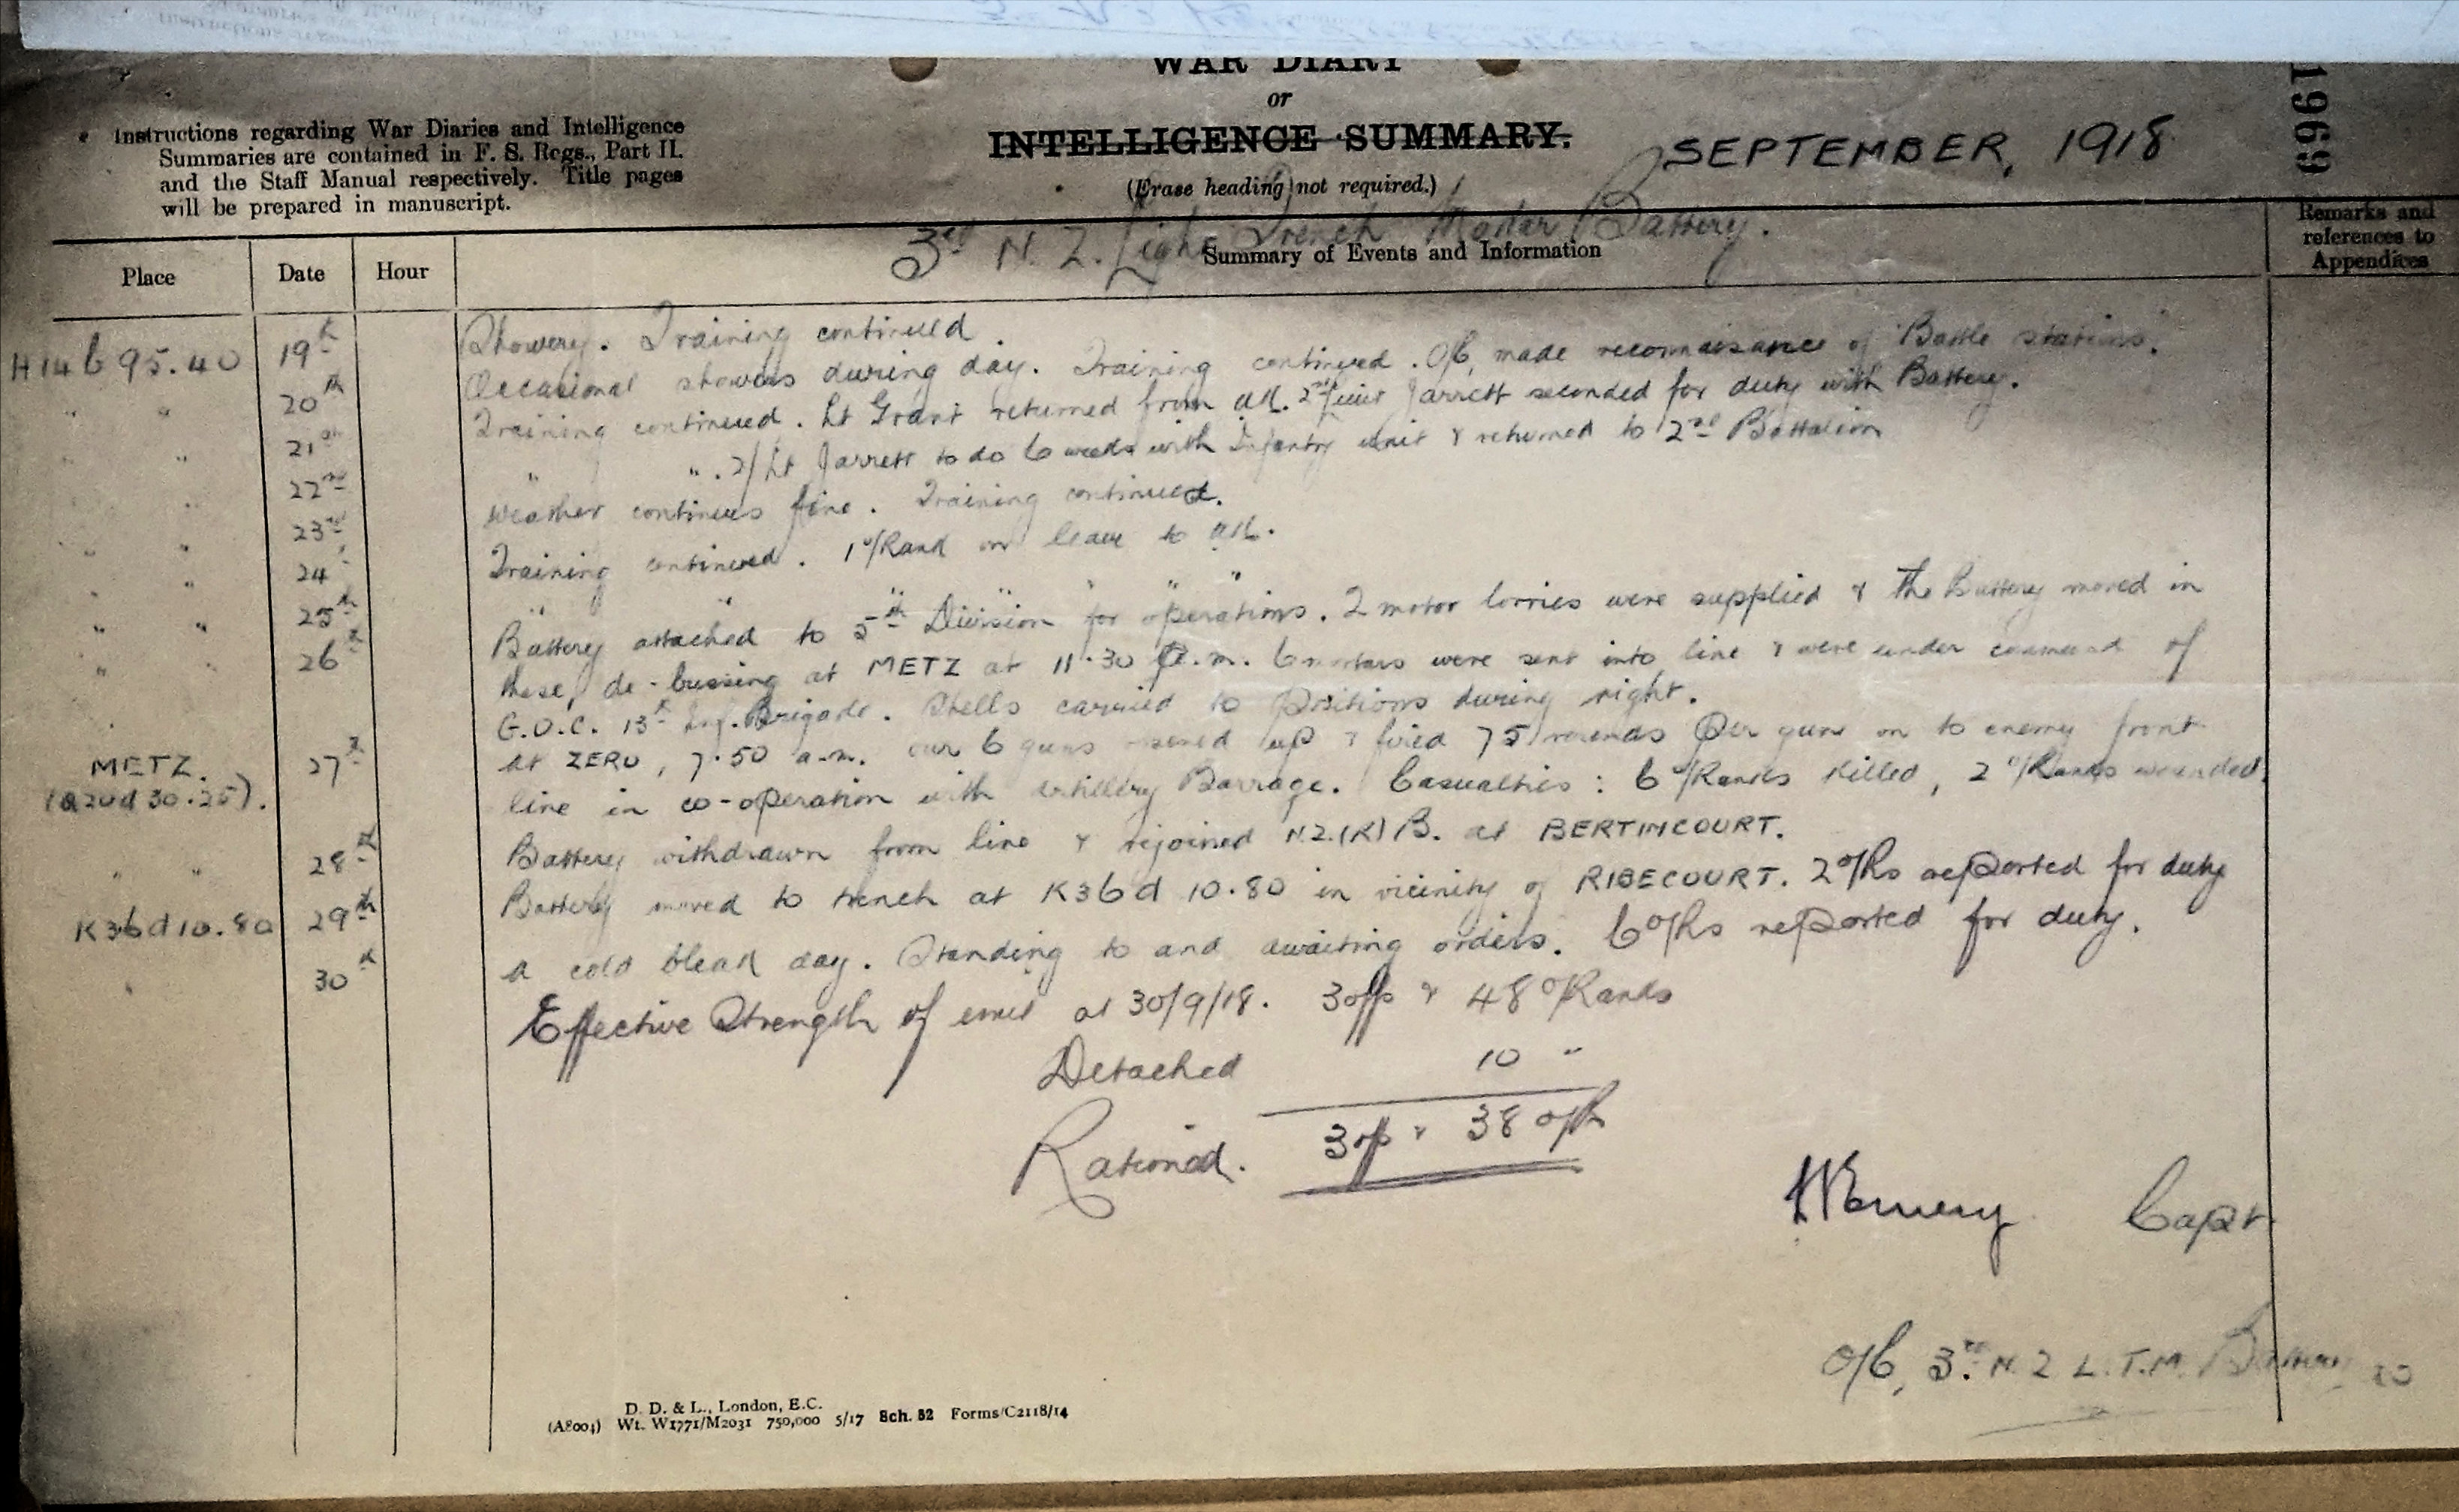 WAR DIARY
or
INTELLIGENCE SUMMARY.
(Erase heading not required.)
Instructions regarding War Diaries and Intelligence
Summaries are contained in F. S. Regs., Part II.
and the Staff Manual respectively. Title pages
will be prepared in manuscript.
SEPTEMBER, 1918
1969
3rd N. Z. Light Trench Mortar Battery.
Place
Date
Hour
Summary of Events and Information
Remarks and
references to
Appendices
H14 b 95.40 19th Showery. Training continued
" " 20th Occasional showers during day. Training continued. O/C, made reconnaisance of "Battle stations".
" 21st Training continued. Lt Grant returned from U.K. 2nd Lieut Jarrett seconded for duty with Battery.
" 22nd " ". 2/Lt Jarrett to do 6 weeks with Infantry unit & returned to 2nd Battalion
" " 23rd Weather continues fine. Training continued.
" " 24 Training continued. 1 O/Rank on leave to U.K.
" " 25th " " " " "
" " 26th Battery attached to 5th Division for operations. 2 motor lorries were supplied & the Battery moved in
these, de-bussing at METZ at 11.30 p.m. 6 mortars were sent into line & were under command of
G.O.C. 13th Inf. Brigade. Shells carried to positions during night.
METZ. 27th At ZERO, 7.50 a.m. our 6 guns opened up & fired 75 rounds per gun on to enemy front
(Q20d 30.25). line in co-operation with artillery Barrage. Casualties: 6 O/Ranks killed, 2 O/Ranks wounded.
" " 28th Battery withdrawn from line & rejoined N.Z.(R)B. at BERTINCOURT.
K36d10.80 29th Battery moved to trench at K36d 10.80 in vicinity of RIBECOURT. 2 O/Rs reported for duty
" 30th A cold bleak day. Standing to and awaiting orders. 6 O/Rs reported for duty.
Effective Strength of unit at 30/9/18. 3 off & 48 O/Ranks
Detached 10 "
Rationed. 3 off & 38 O/R
Capt
O/C, 3rd N Z L.T.M. Battery
D. D. & L., London, E.C.
(A8004) Wt. W1771/M2031 750,000 5/17 Sch. 52 Forms/C2118/14